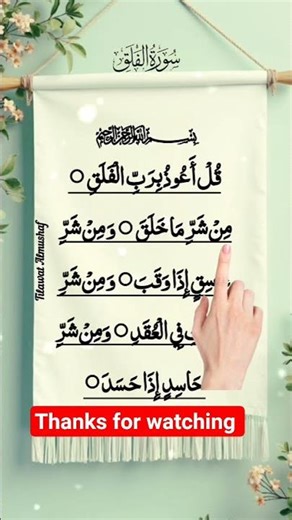 سُورَةُ الْفَلَقِ
بِسْمِ اللهِ الرَّحْمٰنِ الرَّحِيْمِ
قُلْ أَعُوذُ بِرَبِّ الْفَلَقِ ○
مِنْ شَرِّ مَا خَلَقَ ○ وَمِنْ شَرِّ
إِذَا وَقَبَ ○ وَمِنْ شَرِّ
فِي الْعُقَدِ ○ وَمِنْ شَرِّ
حَاسِدٍ إِذَا حَسَدَ ○
Tilawat Almushaf
Thanks for watching